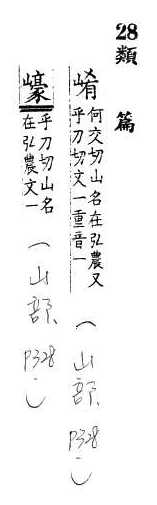 28類 篇
崤 何交切山名在弘農又
乎刀切文一重音一 (山部 P328)
嶹 乎刀切山名
在弘農文一 (山部 P328)